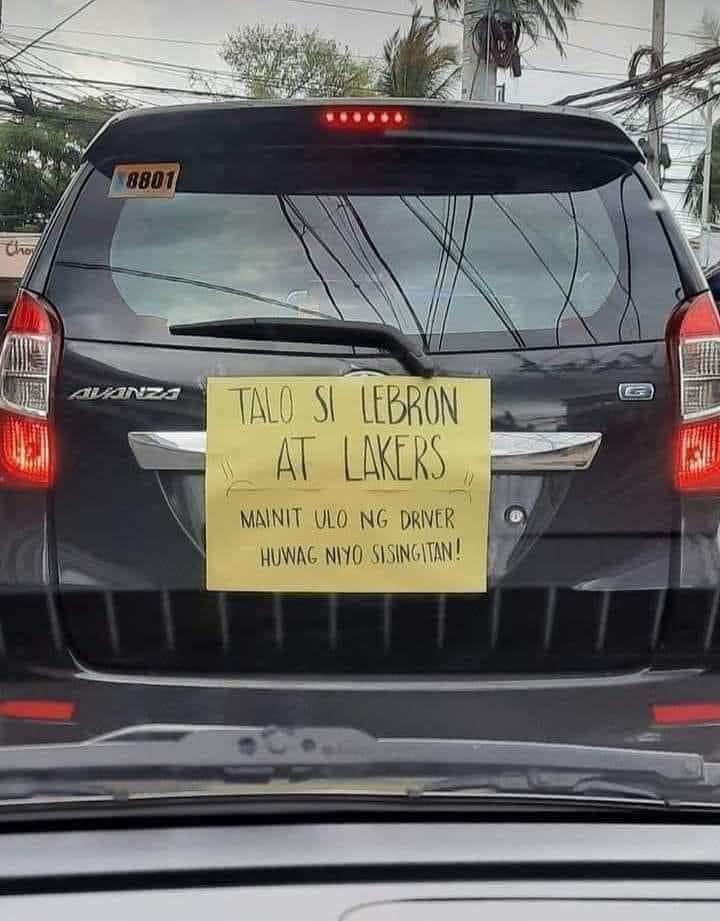 8801
AVANZA
G
TALO SI LEBRON
AT LAKERS
MAINIT ULO NG DRIVER
HUWAG NIYO SISINGITAN!